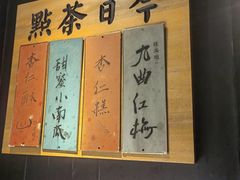 今日茶點
九曲红梅
杏仁糕
甜蜜小南瓜
杏仁酥山